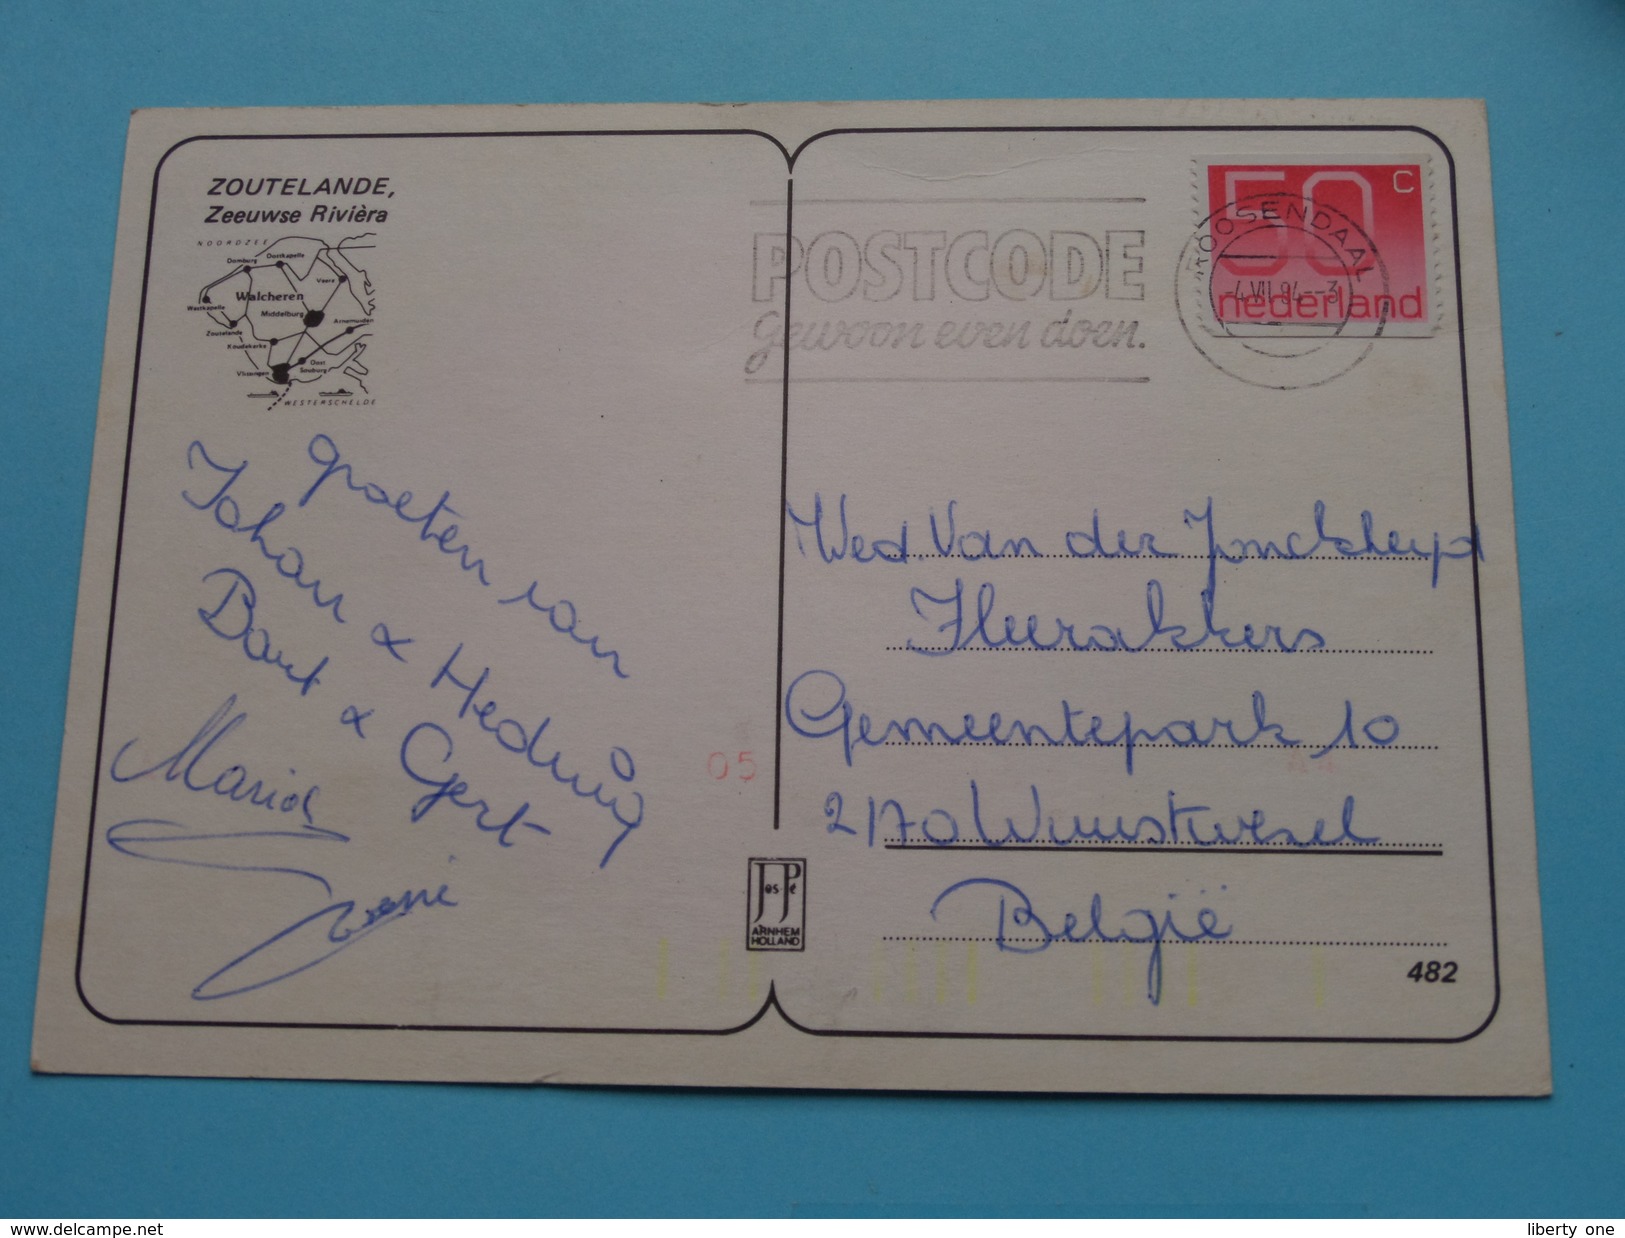 ZOUTELANDE,
Zeeuwse Rivièra
NOORDZEE
Domburg
Oostkapelle
Veere
Walcheren
Westkapelle
Middelburg
Arnemuiden
Zoutelande
Koudekerke
Oost
Souburg
Vlissingen
WESTERSCHELDE
groeten van
Johan & Hedwig
Bart & Gert
Maria
Irene
05
Jos-Pé
ARNHEM
HOLLAND
POSTCODE
gewoon even doen.
ROOSENDAAL
-4.VII.84.--3
50 C
nederland
Wed. Van der Jonckheyd
Heerakkers
Gemeentepark 10
2170 Wuustwezel
België
482
delcampe.net
liberty one